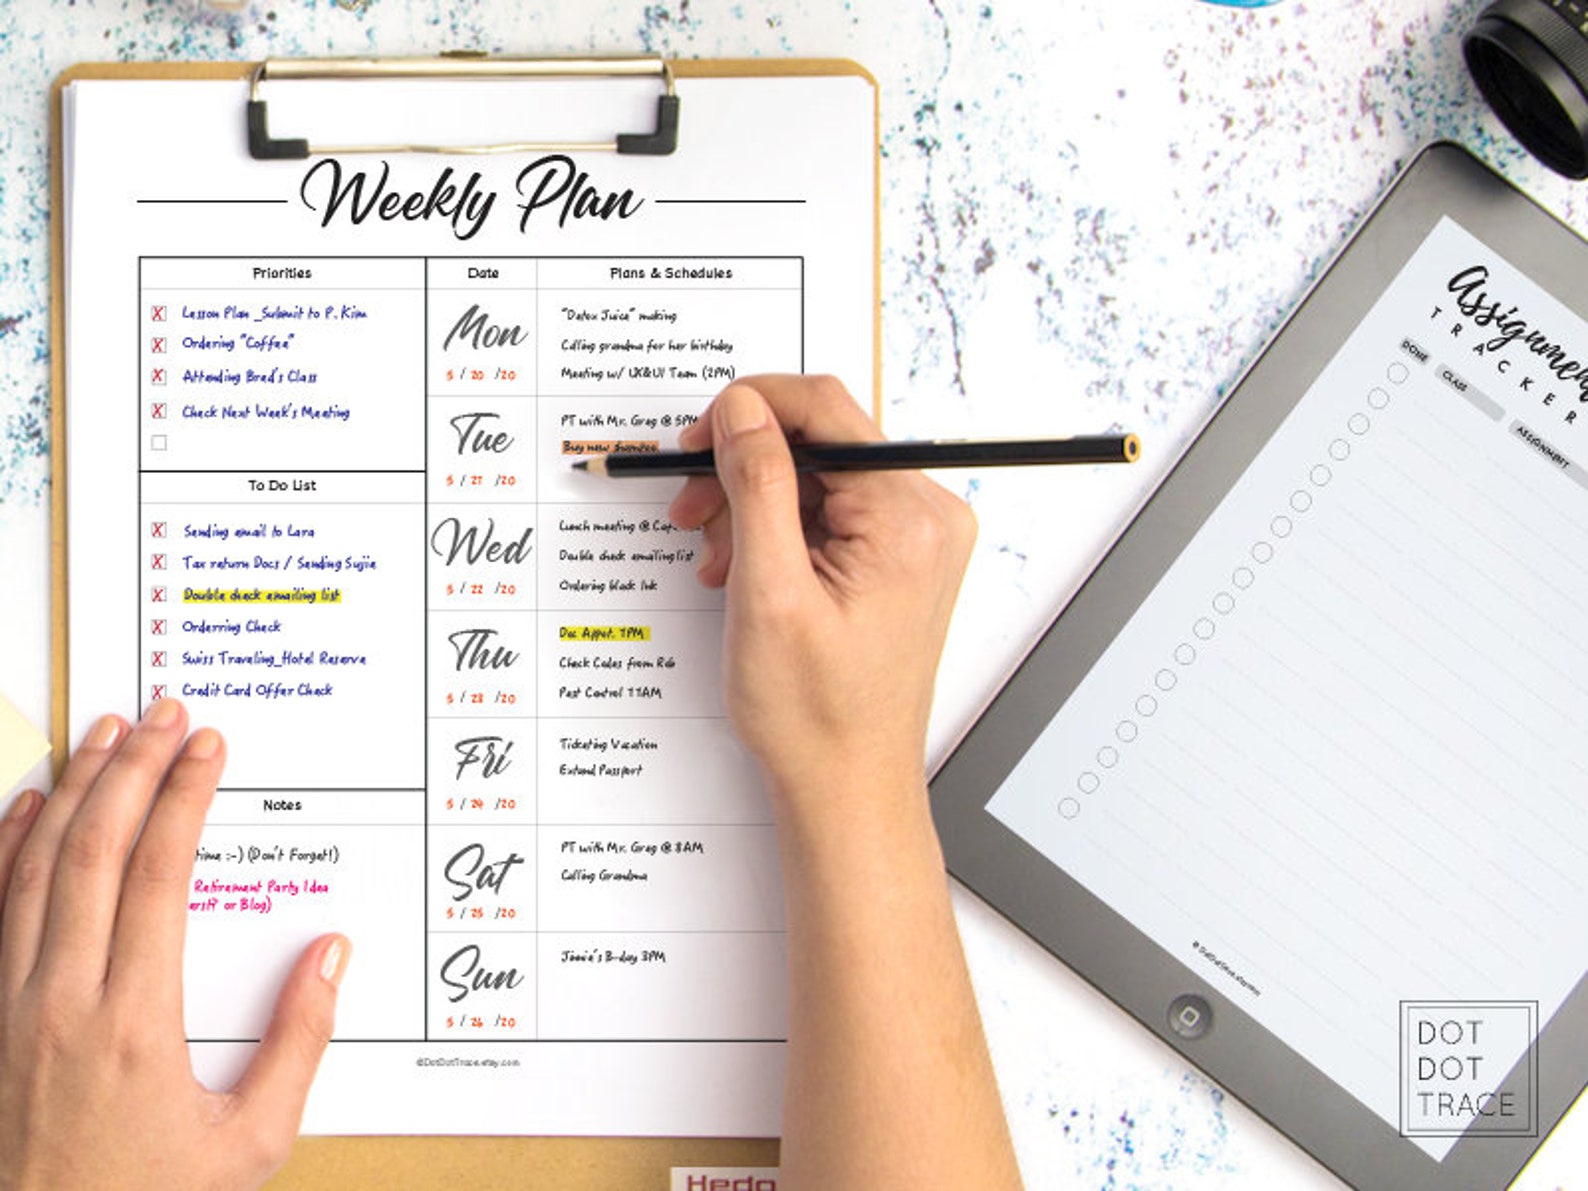 Weekly Plan
Priorities
Lesson Plan _Submit to P. Kim
Ordering "Coffee"
Attending Brad's Class
Check Next Week's Meeting
To Do List
Sending email to Lara
Tax return Docs / Sending Sujie
Double check emailing list
Orderring Check
Swiss Traveling_Hotel Reserve
Credit Card Offer Check
Notes
time :-) (Don't Forget!)
Retirement Party Idea
or Blog)
Date
Plans & Schedules
Mon
5 / 20 /20
"Detox Juice" making
Calling grandma for her birthday
Meeting w/ UX&UI Team (2PM)
Tue
5 / 21 /20
PT with Mr. Greg @ 5PM
Buy new
Wed
5 / 22 /20
Lunch meeting @
Double check emailing list
Ordering black Ink
Thu
5 / 23 /20
Doc Appot. 1PM
Check Codes from Rob
Pest Control 11AM
Fri
5 / 24 /20
Ticketing Vacation
Extend Passport
Sat
5 / 25 /20
PT with Mr. Greg @ 8AM
Calling Grandma
Sun
5 / 26 /20
B-day 3PM
©DotDotTrace.etsy.com
Hedo
Assignmen
TRACKER
DONE
CLASS
ASSIGNMENT
© DotDotTrace.etsy.com
DOT
DOT
TRACE